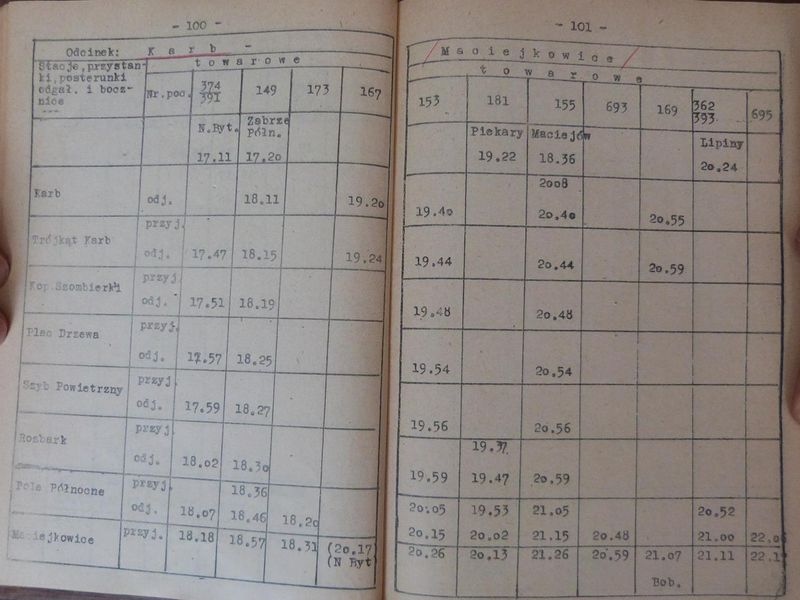 - 100 -
Odcinek: K a r b -
Stacje, przystan-
ki, posterunki
odgał. i bocz-
nice
t o w a r o w e
Nr. poc. 374/391 149 173 167
N.Byt. Zabrze Półn.
17.11 17.20
Karb odj. 18.11 19.20
Trójkąt Karb przyj.
odj. 17.47 18.15 19.24
Kop. Szombierki przyj.
odj. 17.51 18.19
Plac Drzewa przyj.
odj. 17.57 18.25
Szyb Powietrzny przyj.
odj. 17.59 18.27
Rozbark przyj.
odj. 18.02 18.30
Pole Północne przyj. 18.36
odj. 18.07 18.46 18.20
Maciejkowice przyj. 18.18 18.57 18.31 (20.17)
(N Byt)
- 101 -
M a c i e j k o w i c e
t o w a r o w e
153 181 155 693 169 362/393 695
Piekary Maciejów Lipiny
19.22 18.36 20.24
2008
19.40 20.40 20.55
19.44 20.44 20.59
19.48 20.48
19.54 20.54
19.56 20.56
19.37
19.59 19.47 20.59
20.05 19.53 21.05 20.52
20.15 20.02 21.15 20.48 21.00
20.26 20.13 21.26 20.59 21.07 21.11
Bob.